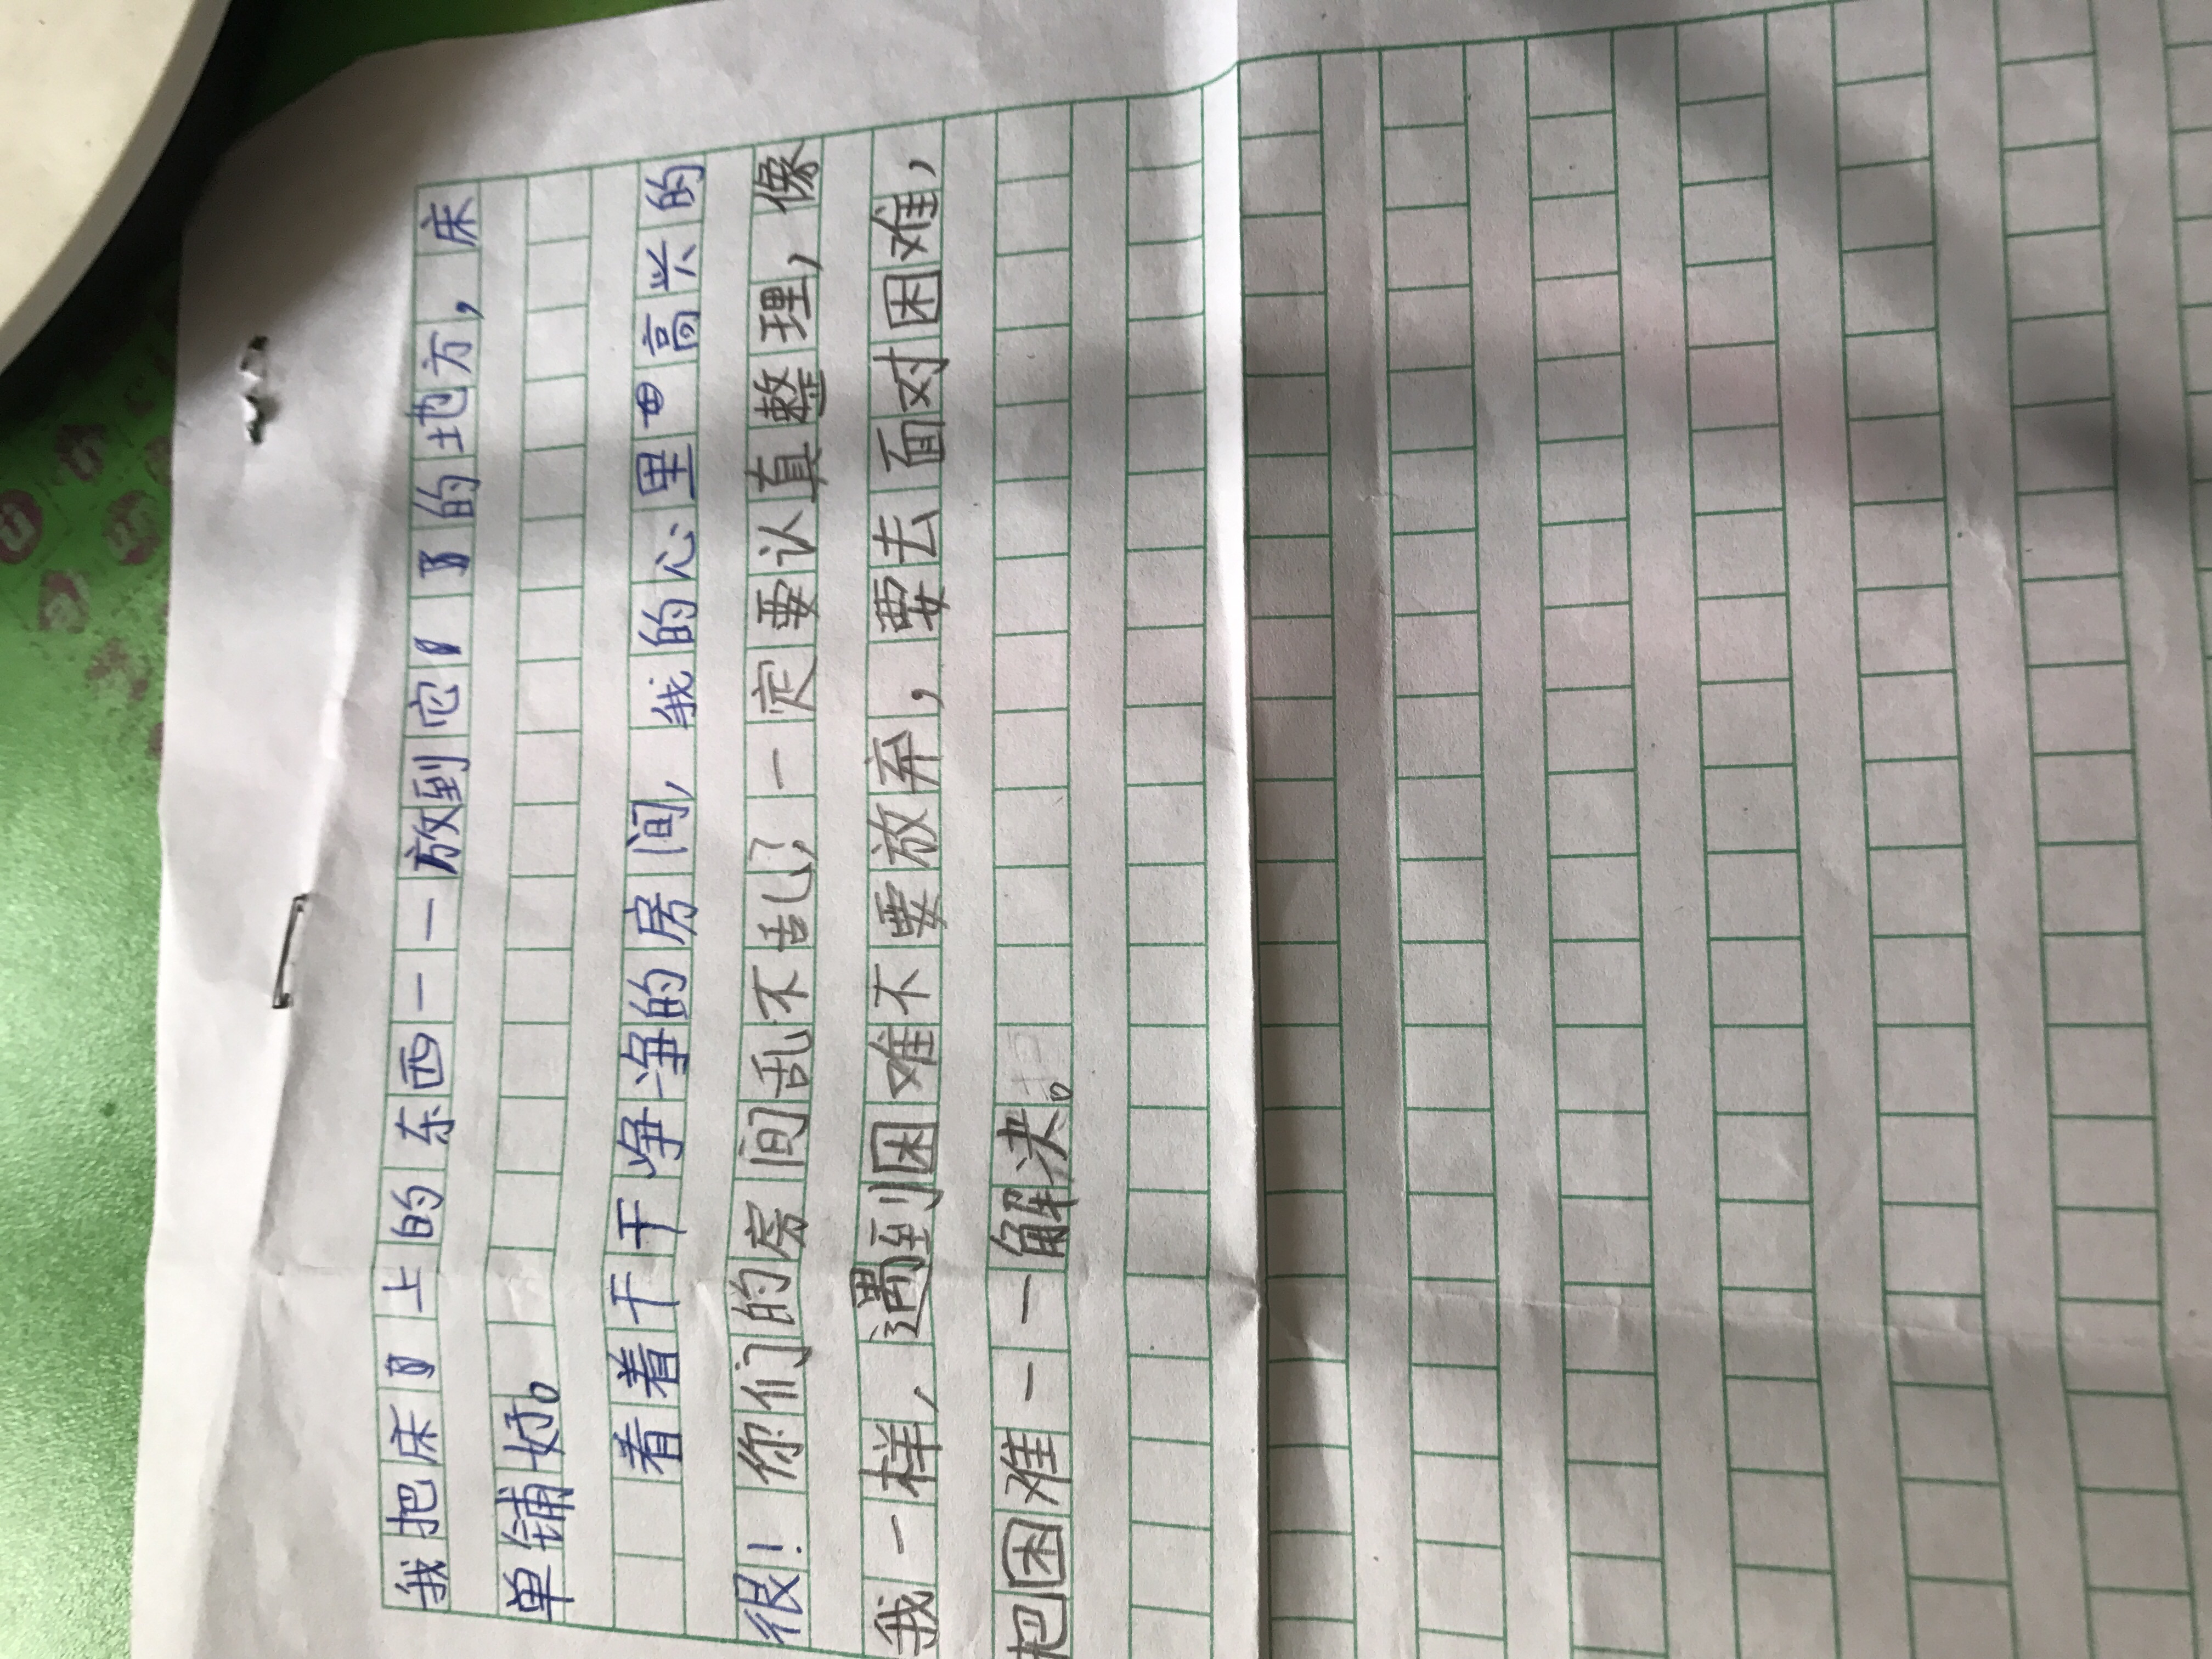 我把床上的东西一一放到它的地方，床
单铺好。
看着干干净净的房间，我的心里高兴的
很！你们的房间乱不乱？一定要认真整理，像
我一样，遇到困难不要放弃，要去面对困难，
把困难一一解决。